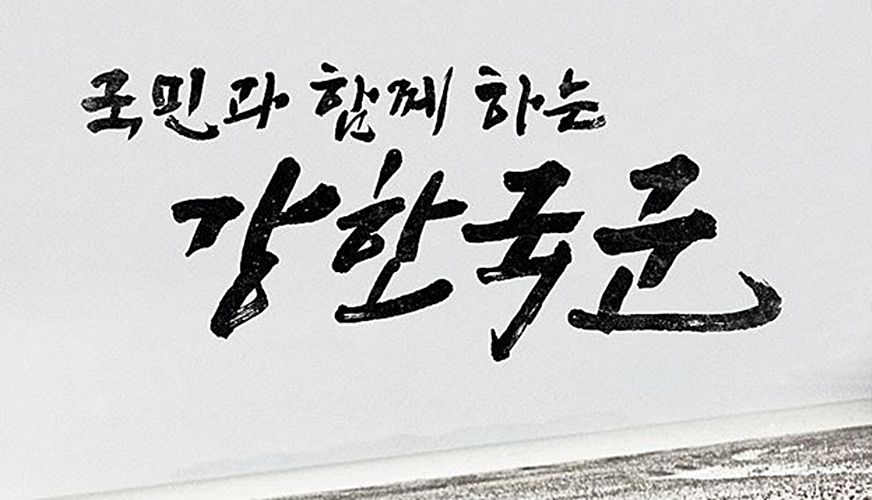 국민과 함께 하는
강한국군